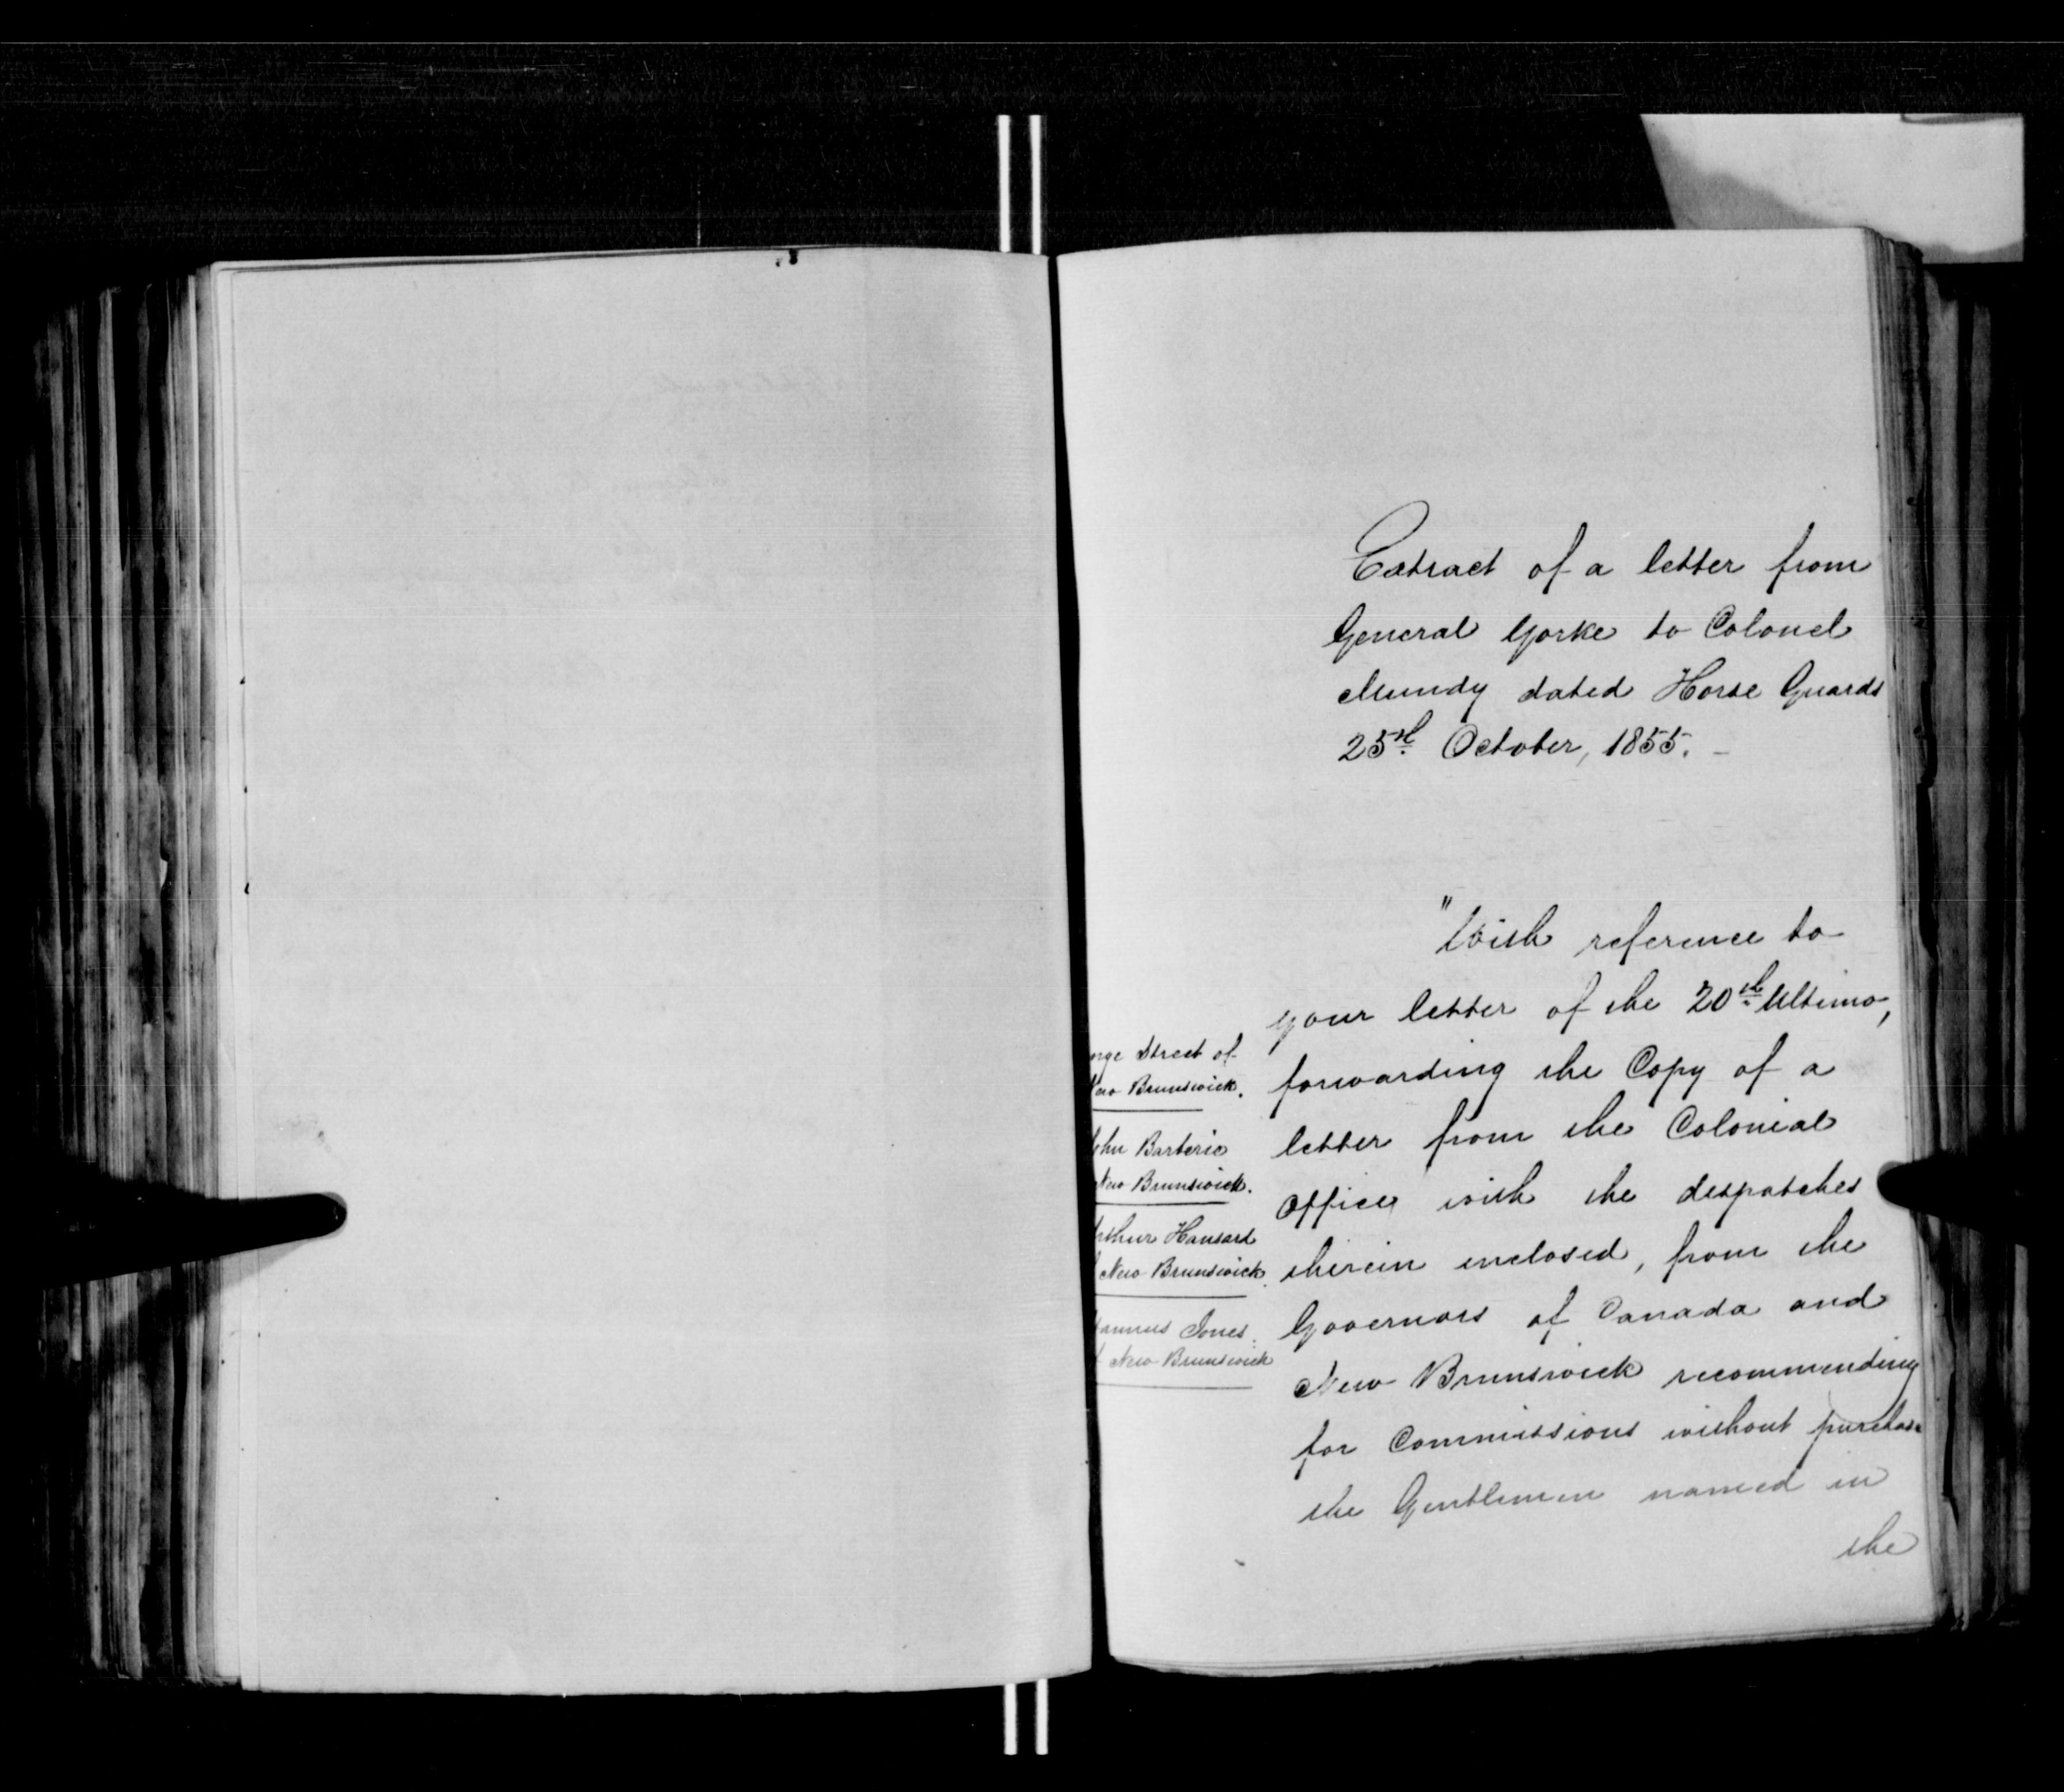 Extract of a letter from
General Yorke to Colonel
Mundy dated Horse Guards
25th October, 1855. –
"With reference to
your letter of the 20th Ultimo,
forwarding the Copy of a
letter from the Colonial
Office with the despatches
therein enclosed, from the
Governors of Canada and
New Brunswick recommending
for Commissions without purchase
the Gentlemen named in
the
Street of
New Brunswick.
John Barberie
New Brunswick.
Arthur Hansard
New Brunswick.
Jones.
New Brunswick